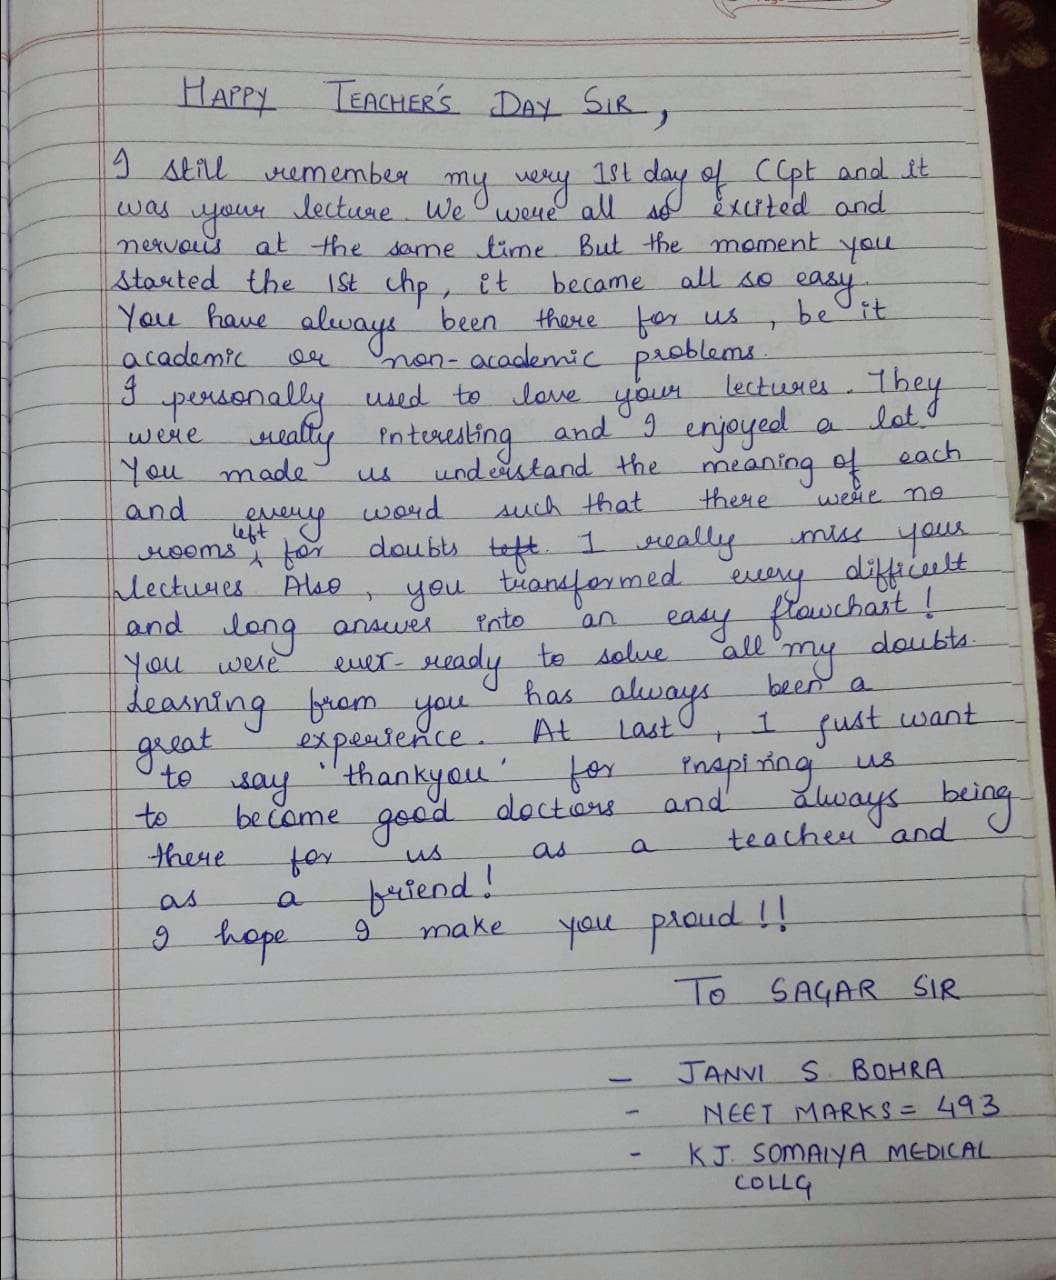 HAPPY TEACHER'S DAY SIR,
I still remember my very 1st day of CCpt and it
was your lecture. We were all so excited and
nervous at the same time But the moment you
started the 1st chp, it became all so easy.
You have always been there for us, be it
academic or non-academic problems.
I personally used to love your lectures. They
were really interesting and I enjoyed a lot.
You made us understand the meaning of each
and every word such that there were no
rooms left for doubts left. I really miss your
lectures Also, you transformed every difficult
and long answer into an easy flowchart!
You were ever-ready to solve all my doubts.
Learning from you has always been a
great experience. At last, I just want
to say 'thankyou' for inspiring us
to become good doctors and always being
there for us as a teacher and
as a friend!
I hope I make you proud!!
TO SAGAR SIR
- JANVI S BOHRA
- NEET MARKS = 493
- KJ. SOMAIYA MEDICAL
COLLG